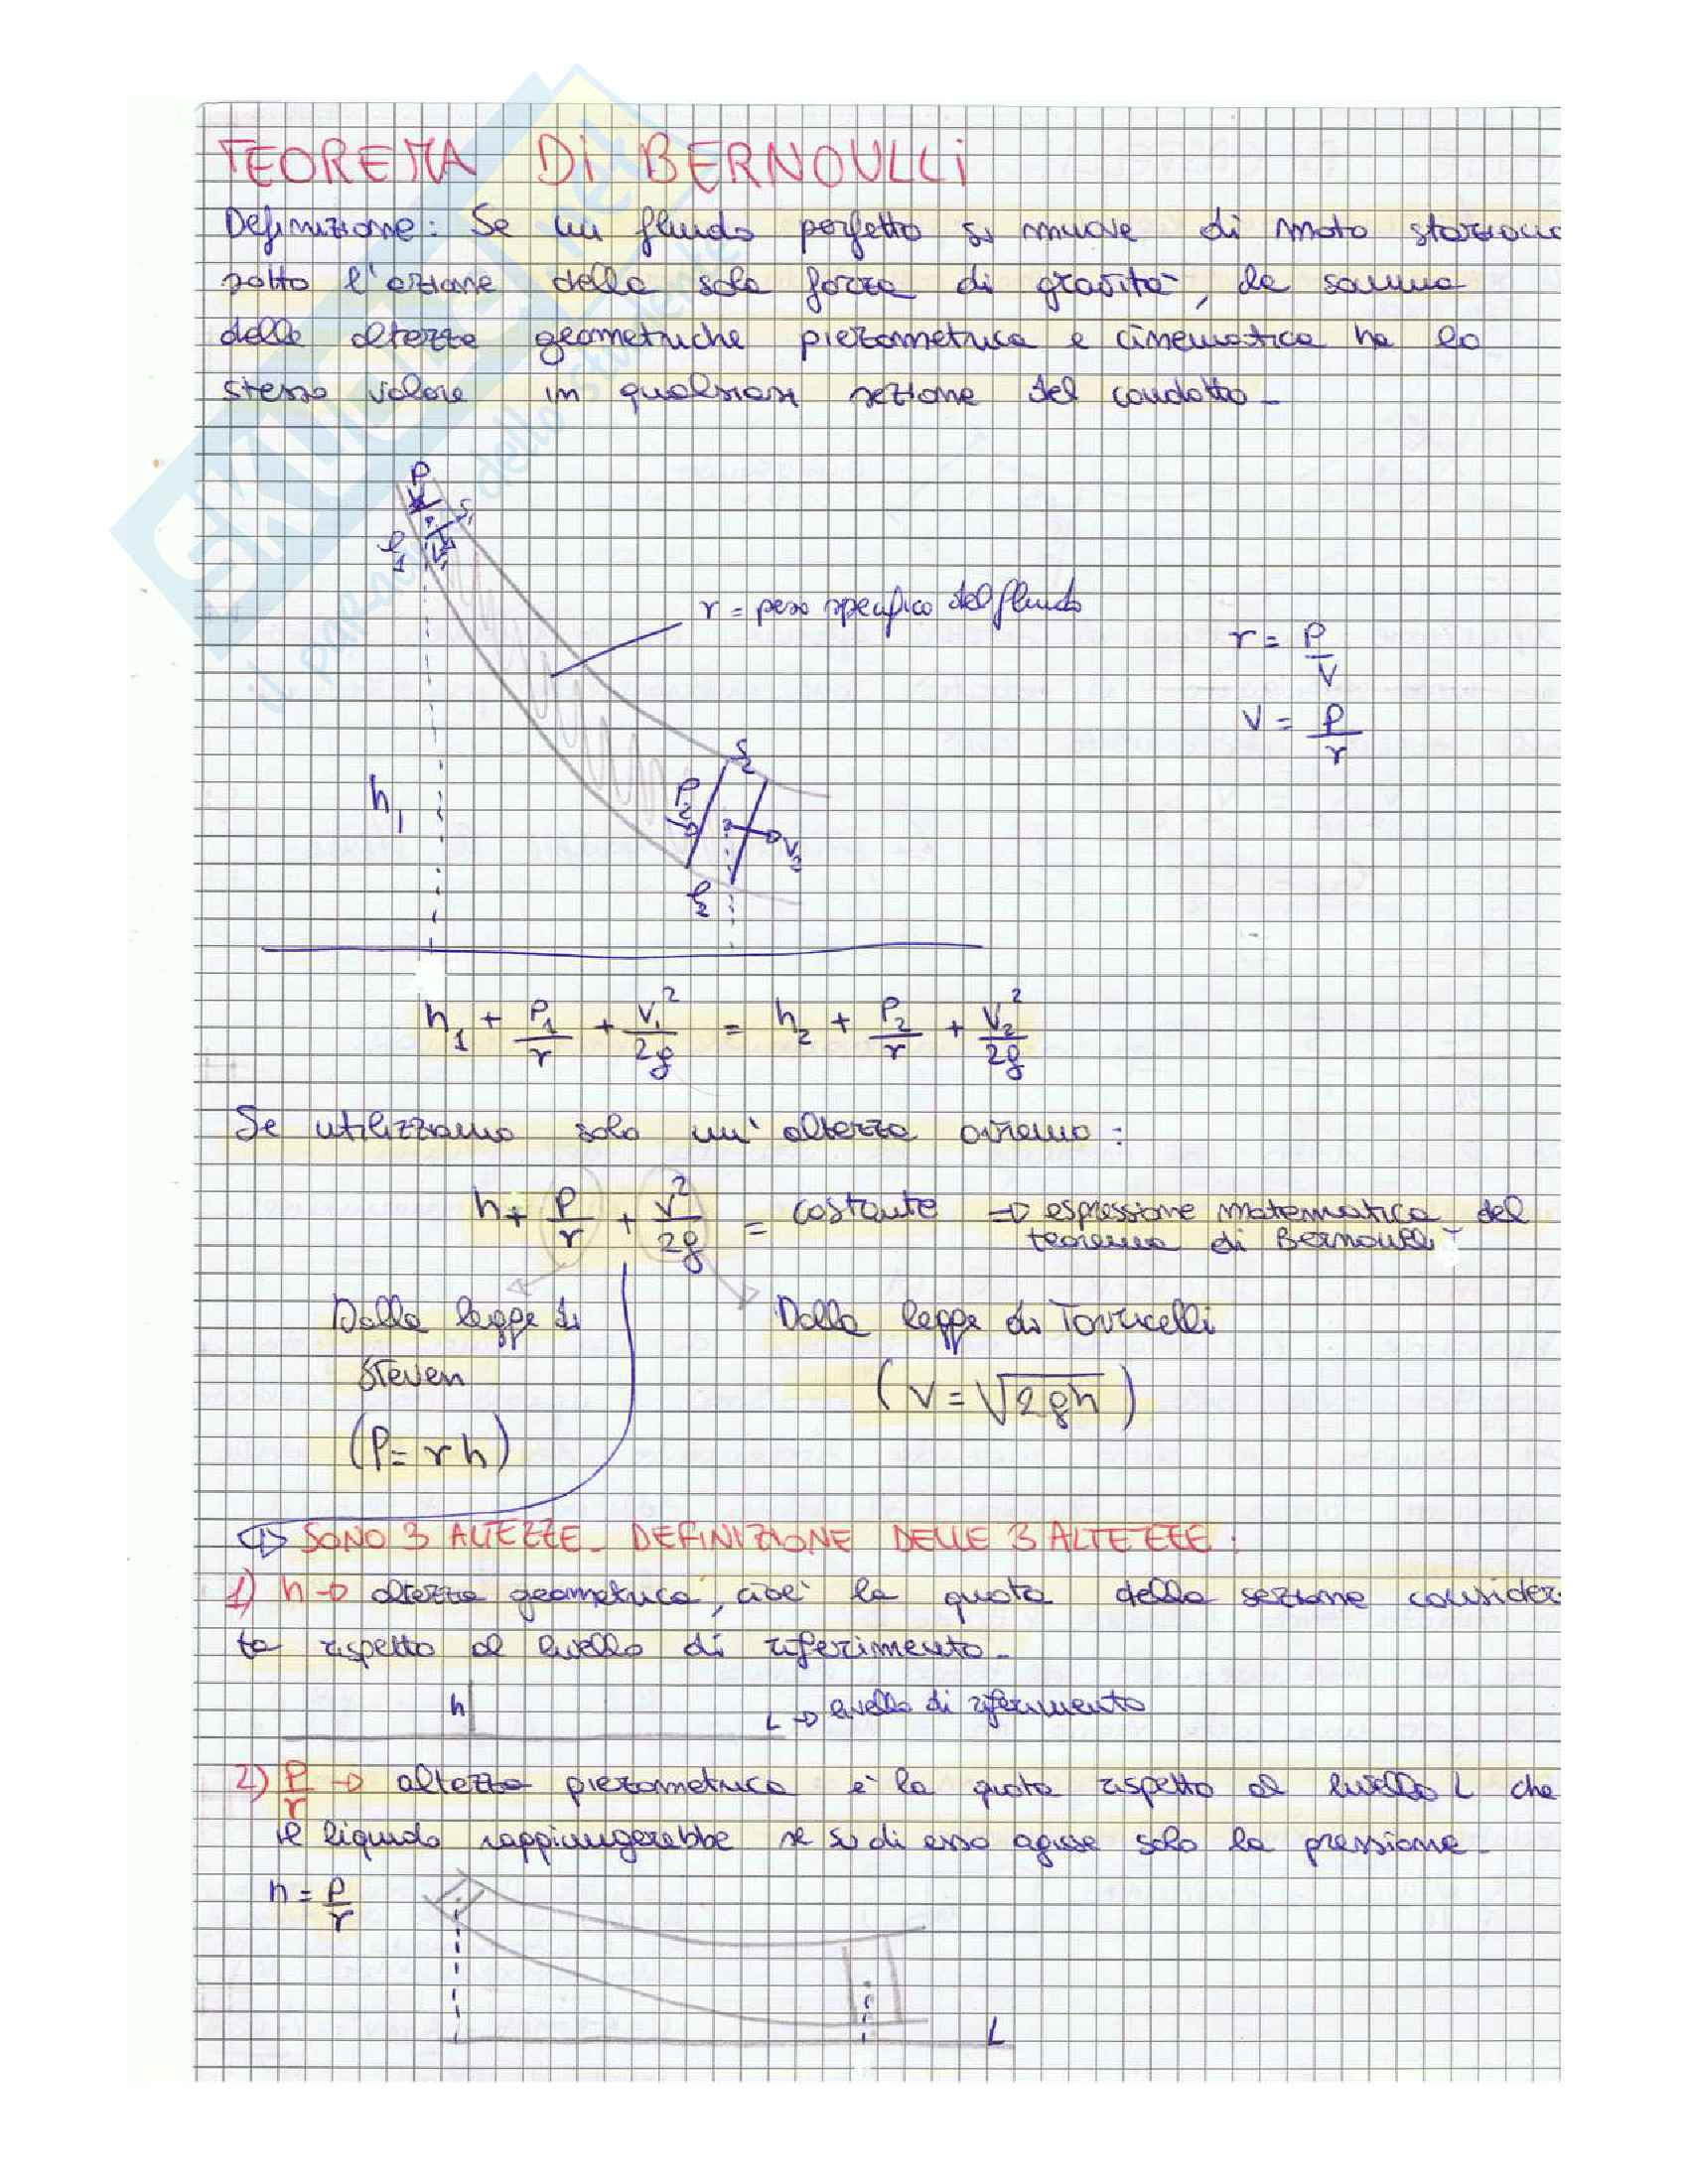 TEOREMA DI BERNOULLI
Definizione: Se un fluido perfetto si muove di moto stazionario
sotto l'azione della sola forza di gravità, la somma
delle altezze geometriche piezometrica e cinematica ha lo
stesso valore in qualsiasi sezione del condotto_
P
S1
l1
r = peso specifico del fluido
r = P/V
V = P/r
S2
h1
P2
V2
l2
h1 + P1/r + V1²/2g = h2 + P2/r + V2²/2g
Se utilizziamo solo un' altezza avremo:
h + P/r + V²/2g = costante => espressione matematica del
teorema di Bernoulli_
Dalla legge di Dalla legge di Torricelli
Steven (V = √2gh)
(P = rh)
SONO 3 ALTEZZE_ DEFINIZIONE DELLE 3 ALTEZZE:
1) h → altezza geometrica, cioè la quota della sezione considera
ta rispetto al livello di riferimento_
h L → livello di riferimento
2) P/r → altezza piezometrica è la quota rispetto al livello L che
il liquido raggiungerebbe se su di esso agisse solo la pressione_
h = P/r
L
SKUOLA.net
il paradiso dello studente